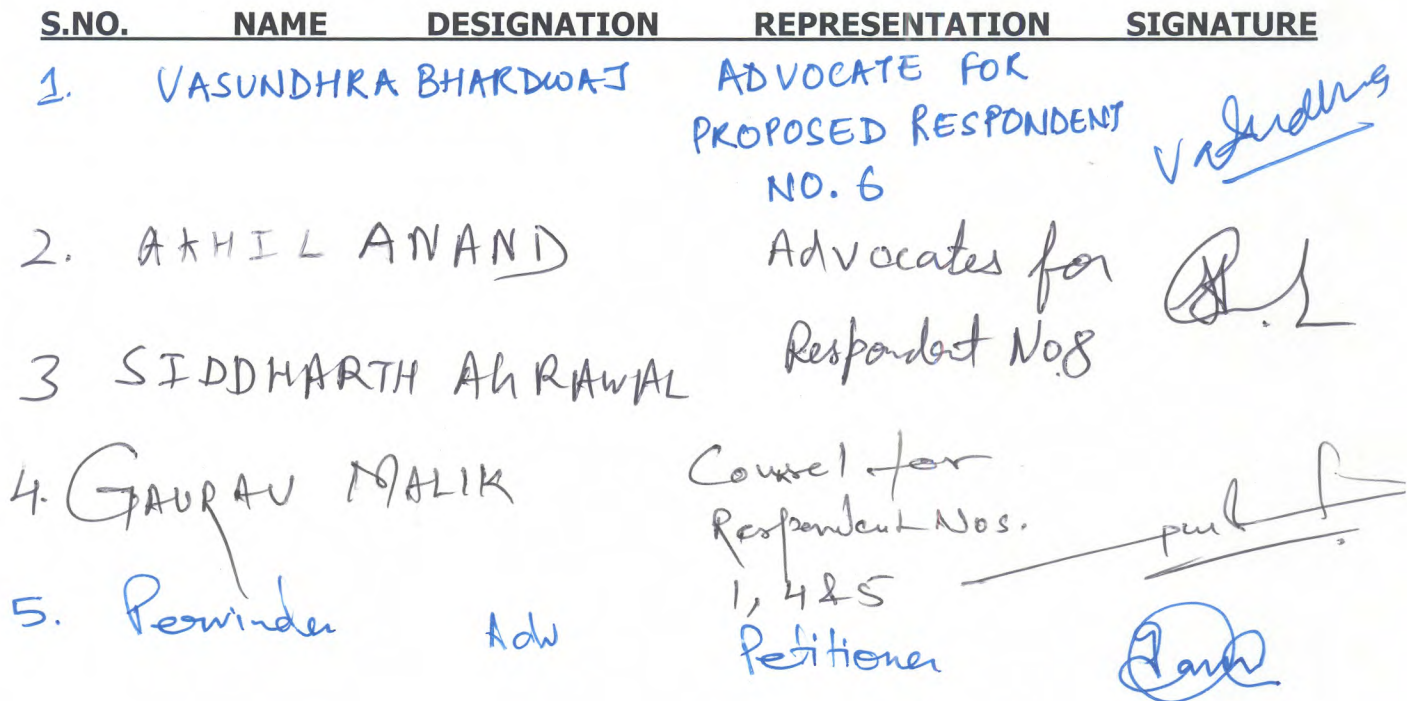 S.NO. NAME DESIGNATION REPRESENTATION SIGNATURE
1. VASUNDHRA BHARDWAJ ADVOCATE FOR
PROPOSED RESPONDENT
NO. 6
Vasundhra
2. AKHIL ANAND Advocates for
Respondent No.8
3 SIDDHARTH AGRAWAL
4. GAURAV MALIK Counsel for
Respondent Nos.
1, 4&5
5. Perwinder Adv Petitioner